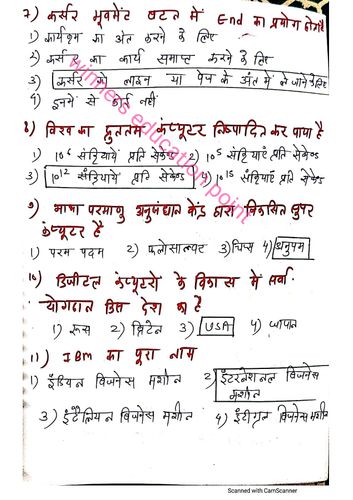 7) कर्सर मूवमेंट बटन में End का प्रयोग होगा
1) कार्यक्रम का अंत करने के लिए
2) कर्सर का कार्य समाप्त करने के लिए
3) कर्सर को लाइन या पेज के अंत में ले जाने के लिए
4) इनमें से कोई नहीं
8) विश्व का द्रुततम कंप्यूटर निष्पादित कर पाया है
1) 10⁶ संक्रियायें प्रति सेकेण्ड 2) 10⁵ संक्रियाएँ प्रति सेकेण्ड
3) 10¹² संक्रियायें प्रति सेकेण्ड 4) 10¹⁵ संक्रियाएँ प्रति सेकेण्ड
9) भाभा परमाणु अनुसंधान केंद्र द्वारा विकसित सुपर
कंप्यूटर है
1) परम पदम 2) फ्लोसाल्वर 3) चिप्स 4) अनुपम
10) डिजीटल कंप्यूटरो के विकास में सर्वा
योगदान किस देश का है
1) रूस 2) ब्रिटेन 3) USA 4) जापान
11) IBM का पूरा नाम
1) इंडियन बिजनेस मशीन 2) इंटरनेशनल बिजनेस
मशीन
3) इटैलियन बिजनेस मशीन 4) इंटीग्रल बिजनेस मशीन
winners education point
Scanned with CamScanner